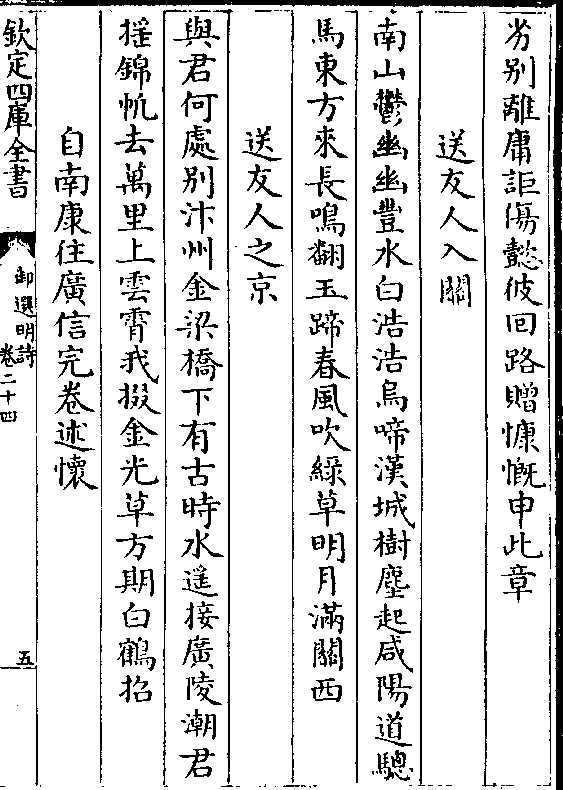 劣别離庸詎傷懿彼回路贈慷慨申此章
送友人入關
南山鬱幽幽豐水白浩浩烏啼漢城樹塵起咸陽道驄
馬東方來長鳴翻玉蹄春風吹綠草明月滿關西
送友人之京
與君何處别汴州金梁橋下有古時水遥接廣陵潮君
摇錦帆去萬里上雲霄我掇金光草方期白鶴招
自南康往廣信完卷述懷
欽定四庫全書
御選明詩
卷二十四
五